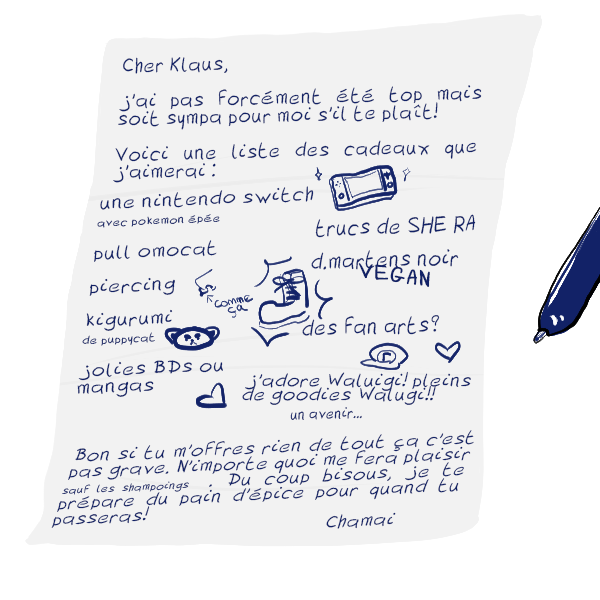 Cher Klaus,
j'ai pas forcément été top mais
soit sympa pour moi s'il te plaît!
Voici une liste des cadeaux que
j'aimerai:
une nintendo switch
avec pokemon épée
trucs de SHE RA
pull omocat
d.martens noir
VEGAN
piercing
comme
ça
kigurumi
de puppycat
des fan arts?
jolies BDs ou
mangas
j'adore Waluigi! pleins
de goodies Walugi!!
un avenir...
Bon si tu m'offres rien de tout ça c'est
pas grave. N'importe quoi me fera plaisir
sauf les shampoings. Du coup bisous, je te
prépare du pain d'épice pour quand tu
passeras!
Chamai